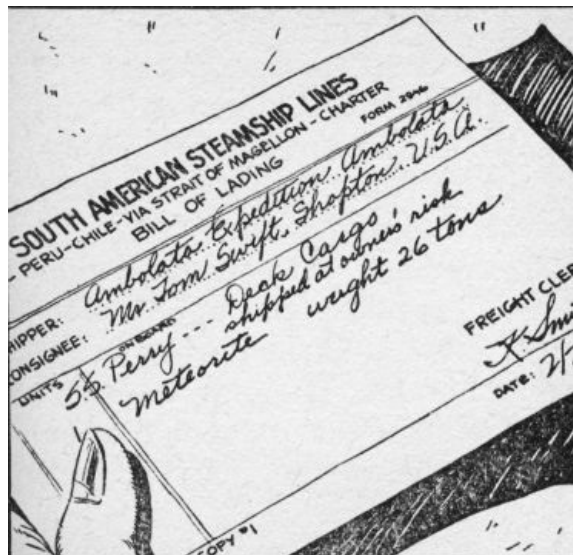 SOUTH AMERICAN STEAMSHIP LINES
- PERU-CHILE-VIA STRAIT OF MAGELLON - CHARTER
BILL OF LADING
FORM 2946
HIPPER: Ambolata Expedition Ambolata
ONSIGNEE: Mr. Tom Swift, Shopton U.S.A.
UNITS
ON BOARD
S.S. Perry --- Deck Cargo
shipped at owner's risk
Meteorite weight 26 tons
FREIGHT CLER
K. Smi
DATE: 2/
COPY #1